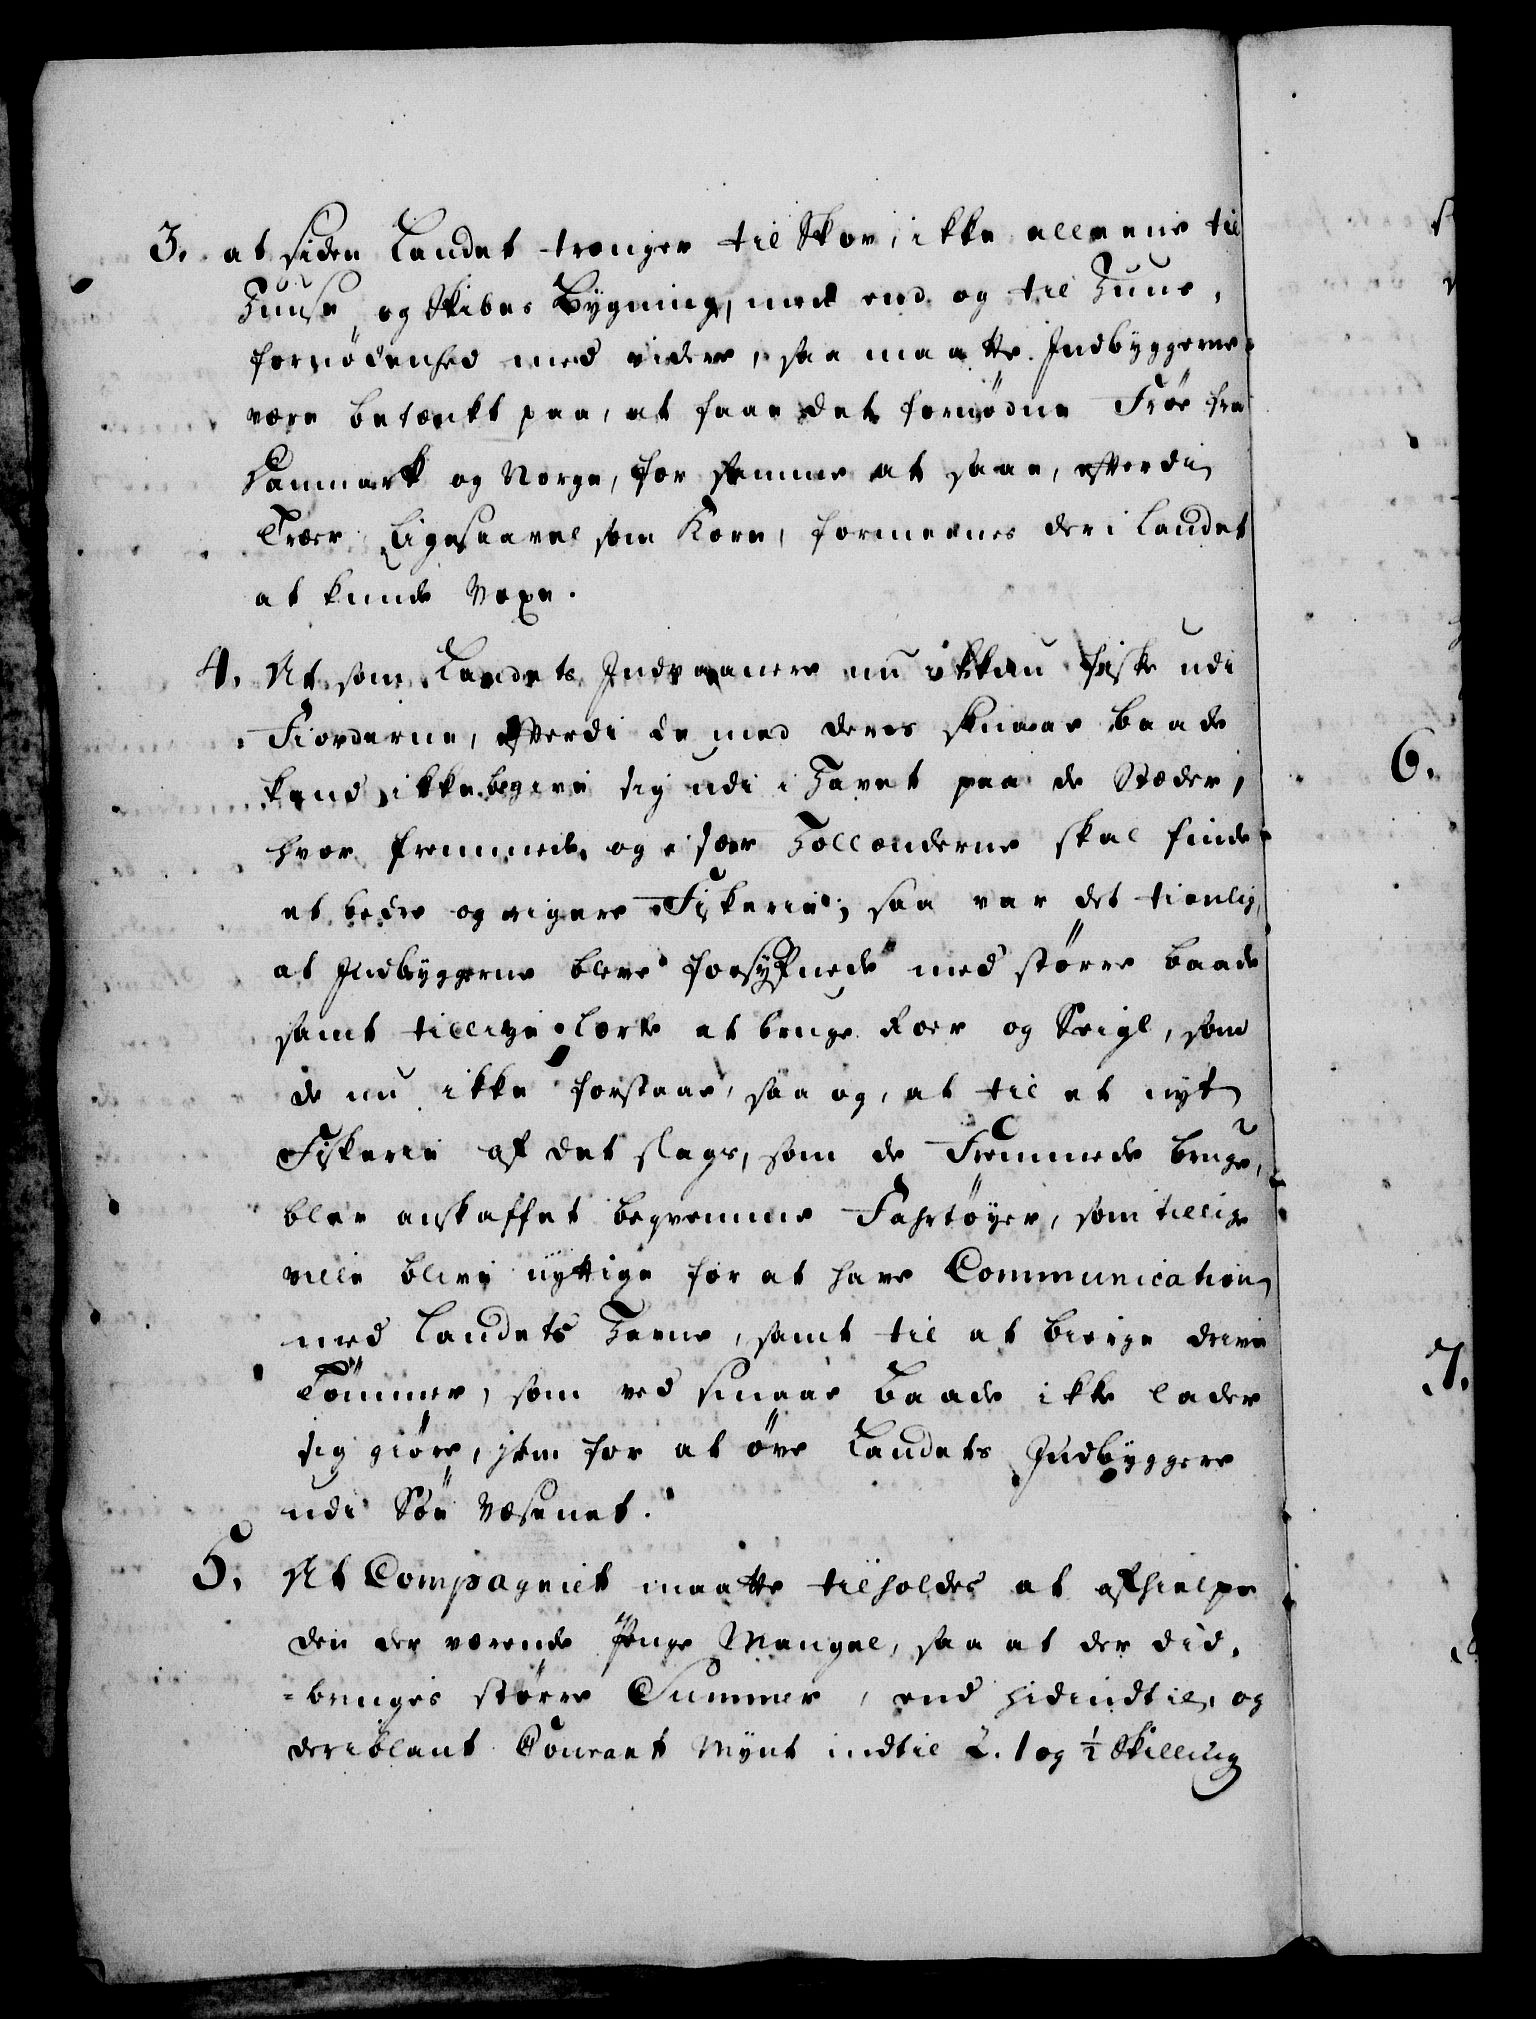 3. at siden Landet trænger til Skov, ikke alleene til
Huuse, og Skibes Bygning, med end og til Huus,
fornødenhed med videre, saa maatte Indbyggerne
være betænkt paa, at faae det fornødne Frøe fra
Danmark og Norge, for samme at saae, efterdi
Træer ligesaavel som Korn, formeenes der i Landet
at kunde Vexe.
4. At som Landets Indvaanere nu ikkun fiske udi
Fiorderne, efterdi de med deres smaae baade
kand ikke begive sig udi i Havet paa de Stæder,
hvor fremmede og især Hollænderne skal finde
et bedre og rigere Fiskerie; saa var det tienlig,
at Indbyggerne bleve forsyfnede med större baade
samt tillige lærte at bruge Roer og Seigl, som
de nu ikke forstaae, saa og, at til et nyt
Fiskerie af det slags, som de Fremmede bruge,
blev anskaffet beqvemme Fahrtöyer, som tillige
ville blive nyttige for at have Communication
med Landets Havne, samt til at bierge drive
Tömmer, som ved smaae Baade ikke lader
sig giöre, item for at öve Landets Indbyggere
udi Söe Væsenet.
5. At Compagniet maatte tilholdes at afhielpe
den der værende Penge Mangel, saa at der did,
=bringes större Summer, end hidindtil, og
deriblant Courant Mynt indtil 2. 1 og ½ Skilling
6.
7.